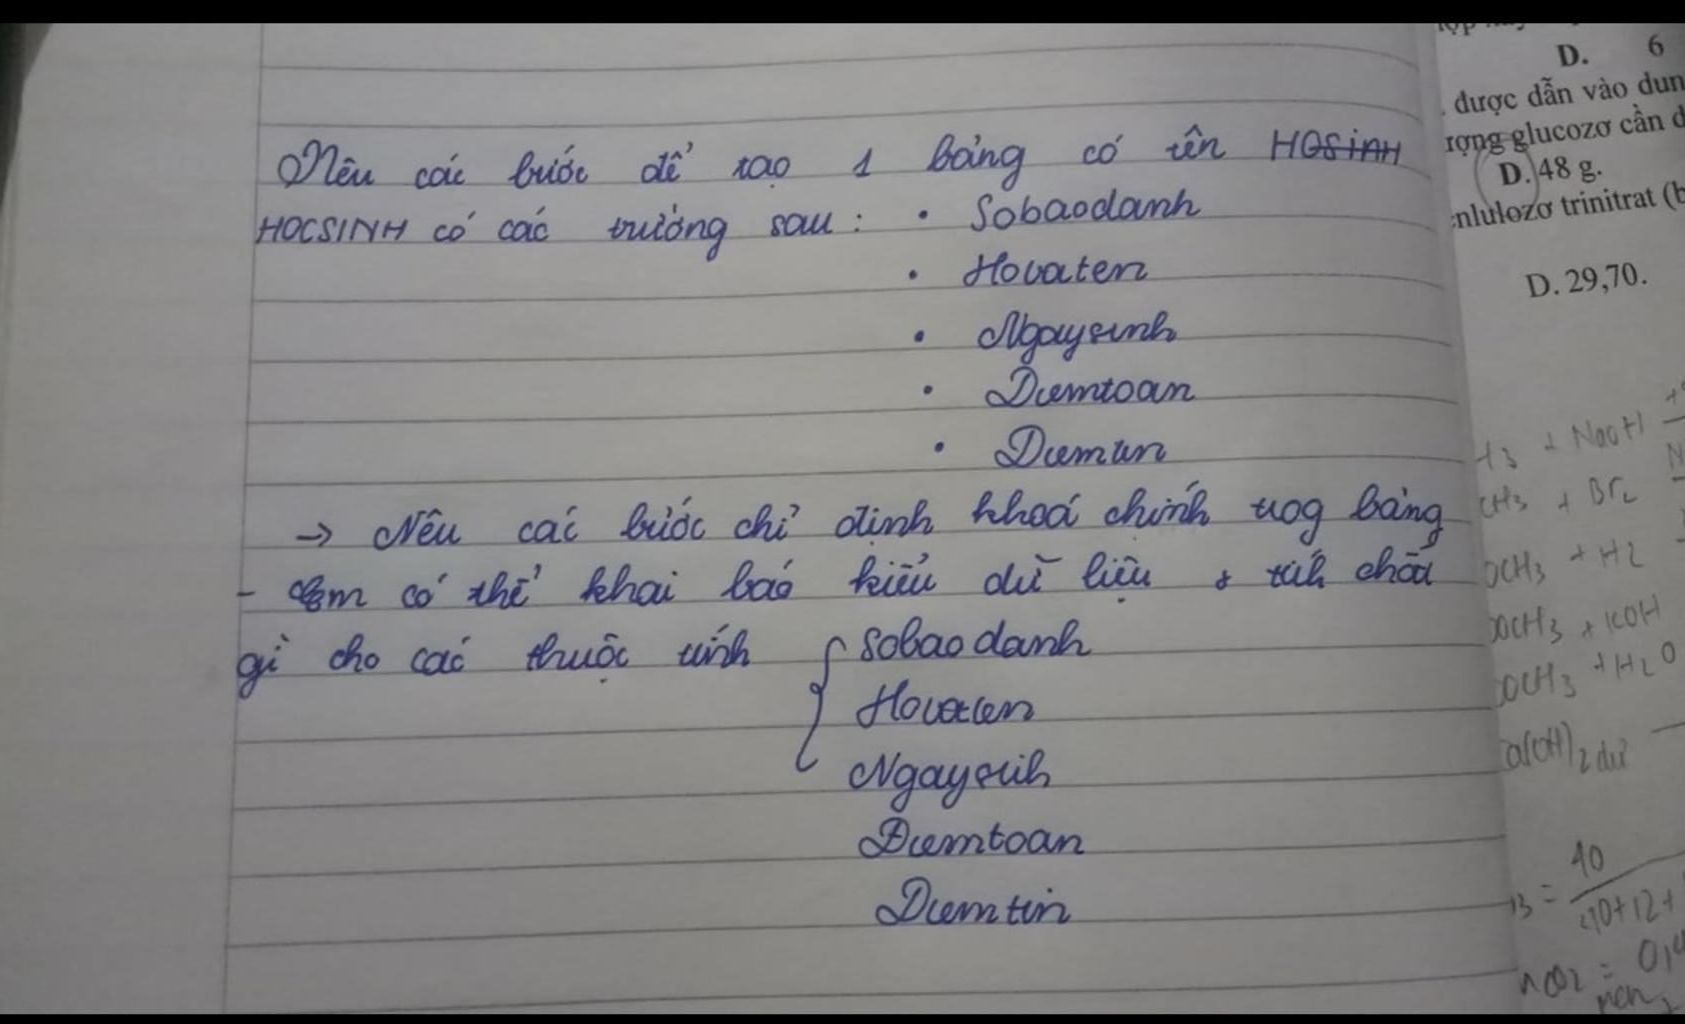 Nêu các bước để tạo 1 bảng có tên HOSINH
HOCSINH có các trường sau: • Sobaodanh
• Hovaten
• Ngaysinh
• Diemtoan
• Diemtin
→ Nêu các bước chỉ định khoá chính trog bảng
- Em có thể khai báo kiểu dữ liệu & tính chất
gì cho các thuộc tính { Sobaodanh
Hovaten
Ngaysinh
Diemtoan
Diemtin
D. 6
được dẫn vào dun
glucozơ cần
D. 48 g.
trinitrat
D. 29,70.
+ NaOH
CH3 + Br2
OCH3 + H2
OCH3 + KOH
OCH3 + H2O
(OH)2 dư
40
40+12+
nCO2 =